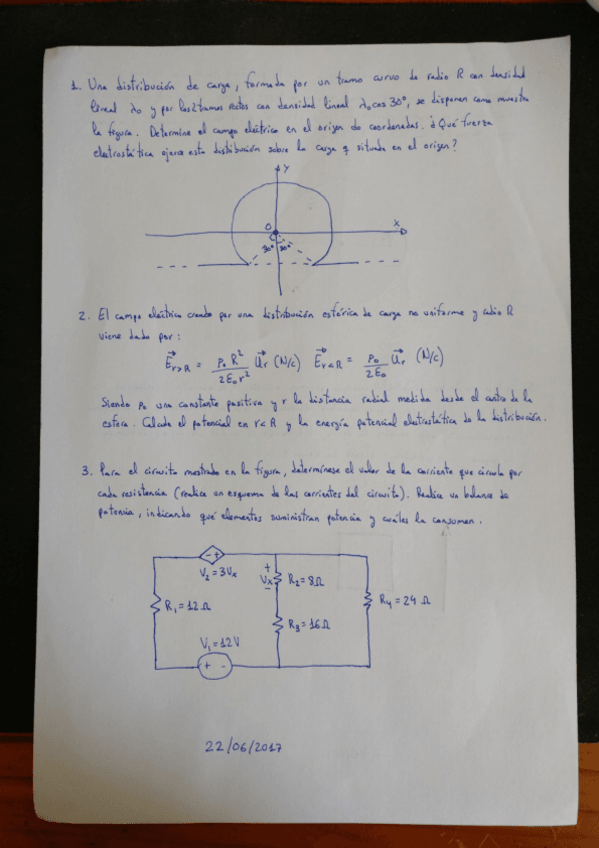 1. Una distribución de carga, formada por un tramo curvo de radio R con densidad
lineal λ0 y por los 2 tramos rectos con densidad lineal λ0 cos 30°, se disponen como muestra
la figura. Determine el campo eléctrico en el origen de coordenadas. ¿Qué fuerza
electrostática ejerce esta distribución sobre la carga q situada en el origen?
Y
X
O
30° 30°
2. El campo eléctrico creado por una distribución esférica de carga no uniforme y radio R
viene dado por:
E⃗r>R = ρ0 R² / 2ε0 r² u⃗r (N/C) E⃗r<R = ρ0 / 2ε0 u⃗r (N/C)
Siendo ρ0 una constante positiva y r la distancia radial medida desde el centro de la
esfera. Calcule el potencial en r<R y la energía potencial electrostática de la distribución.
3. Para el circuito mostrado en la figura, determínese el valor de la corriente que circula por
cada resistencia (realice un esquema de las corrientes del circuito). Realice un balance de
potencia, indicando qué elementos suministran potencia y cuáles la consumen.
- +
V2 = 3Vx
+
Vx
-
R2 = 8Ω
R1 = 12Ω
R4 = 24Ω
R3 = 16Ω
V1 = 12V
+ -
22/06/2017